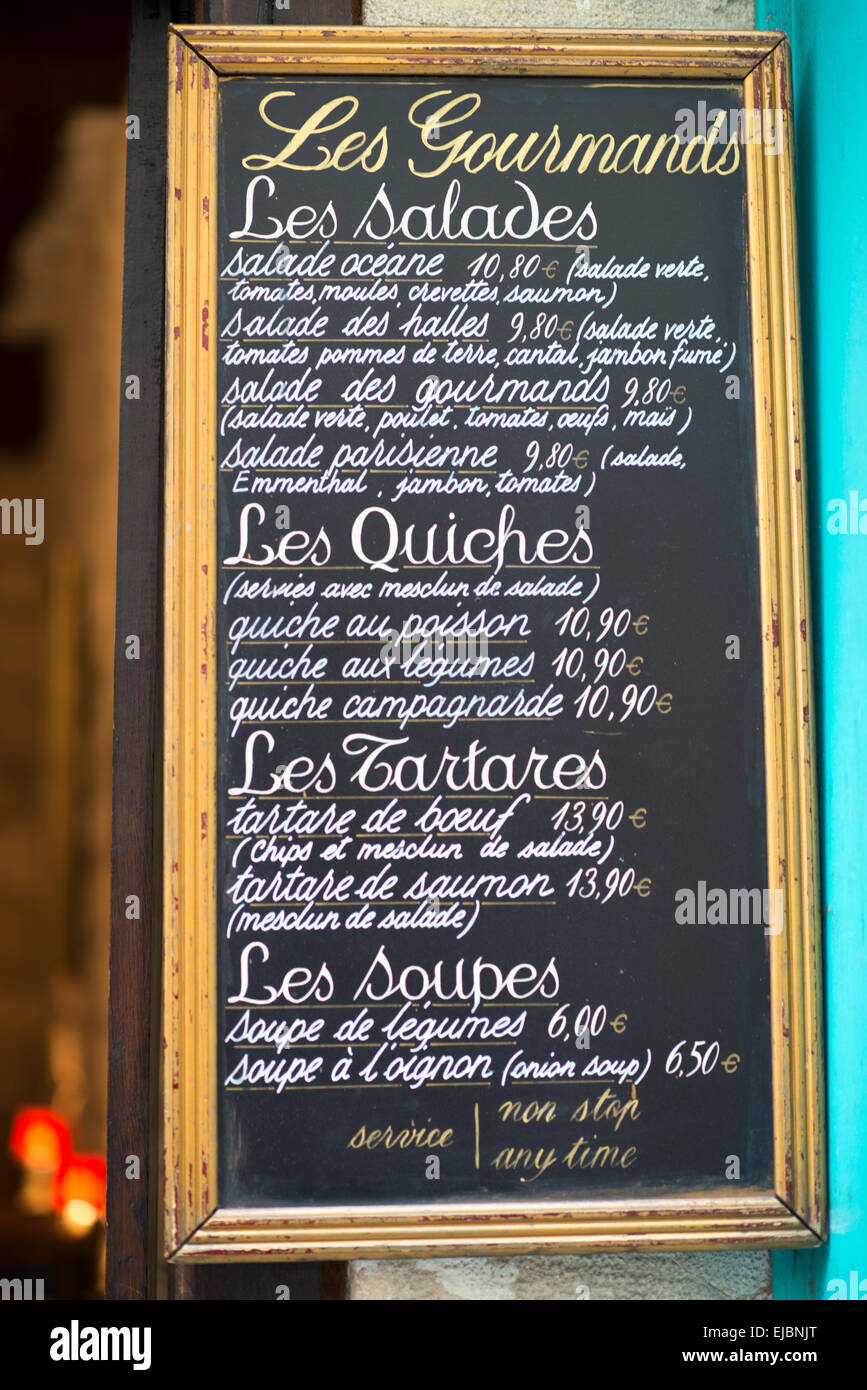 Les Gourmands
Les Salades
salade océane 10,80€ (salade verte,
tomates, moules, crevettes, saumon)
salade des halles 9,80€ (salade verte,
tomates pommes de terre, cantal, jambon fumé)
salade des gourmands 9,80€
(salade verte, poulet, tomates, œufs, maïs)
salade parisienne 9,80€ (salade,
Emmenthal, jambon, tomates)
Les Quiches
(servies avec mesclun de salade)
quiche au poisson 10,90€
quiche aux légumes 10,90€
quiche campagnarde 10,90€
Les Tartares
tartare de bœuf 13,90€
(chips et mesclun de salade)
tartare de saumon 13,90€
(mesclun de salade)
Les Soupes
soupe de légumes 6,00€
soupe à l'oignon (onion soup) 6,50€
service | non stop
any time
alamy
alamy stock photo
Image ID: EJBNJT
www.alamy.com